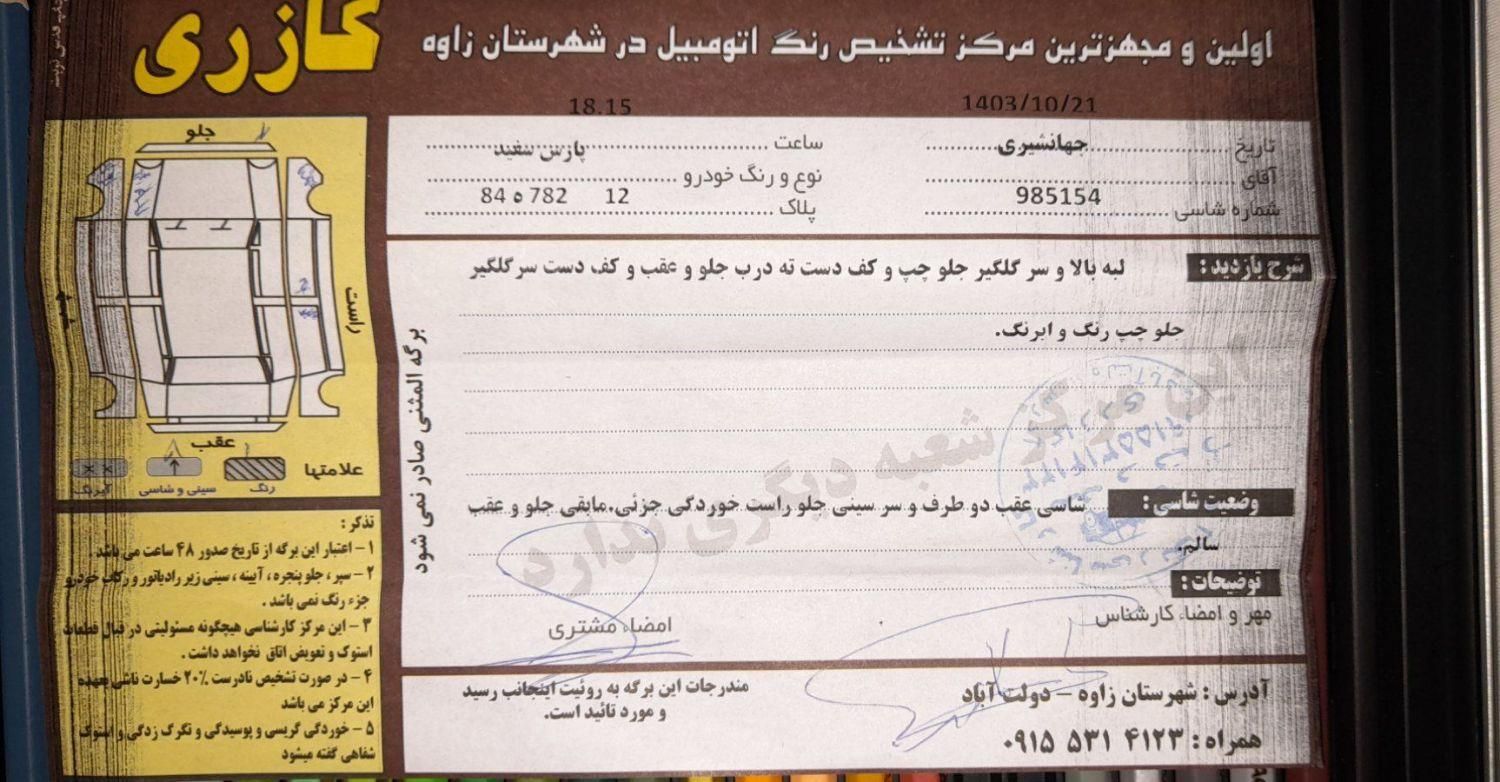 گازری
اولین و مجهزترین مرکز تشخیص رنگ اتومبیل در شهرستان زاوه
1403/10/21
18.15
تاریخ
جهانشیری
ساعت
پارس سفید
آقای
نوع و رنگ خودرو
شماره شاسی
985154
پلاک
12 782 ه 84
شرح بازدید :
لبه بالا و سر گلگیر جلو چپ و کف دست ته درب جلو و عقب و کف دست سر گلگیر
جلو چپ رنگ و ابرنگ.
این مرکز شعبه دیگری ندارد
وضعیت شاسی :
شاسی عقب دو طرف و سر سینی جلو راست خوردگی جزئی. مابقی جلو و عقب
سالم.
توضیحات :
مهر و امضاء کارشناس
امضاء مشتری
آدرس : شهرستان زاوه - دولت آباد
همراه : ۰۹۱۵ ۵۳۱ ۴۱۲۳
مندرجات این برگه به روئیت اینجانب رسید
و مورد تائید است.
برگه المثنی صادر نمی شود
جلو
راست
عقب
علامتها
رنگ
سینی و شاسی
آبرنگ
تذکر :
۱- اعتبار این برگه از تاریخ صدور ۴۸ ساعت می باشد .
۲- سپر ، جلو پنجره ، آیینه ، سینی زیر رادیاتور و رکاب خودرو
جزء رنگ نمی باشد .
۳- این مرکز کارشناسی هیچگونه مسئولیتی در قبال قطعات
استوک و تعویض اتاق نخواهد داشت .
۴- در صورت تشخیص نادرست ۲۰٪ خسارت ناشی بعهده
این مرکز می باشد
۵- خوردگی گریسی و پوسیدگی و تگرگ زدگی و استوک
شفاهی گفته میشود